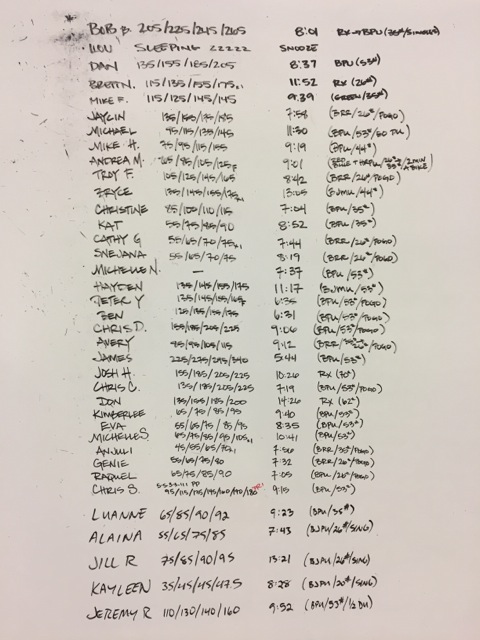 BOB B. 205/225/245/265 8:01 RX→BPU (35#/SINGLES)
LOU SLEEPING ZZZZZ SNOOZE
DAN 135/155/185/205 8:37 BPU (53#)
BRETT N. 115/135/155/175x1 11:52 RX (26#)
MIKE F. 115/125/145/145 9:39 (GREEN/35#)
JAYLIN 135/155/175/195 7:58 (BRR/26#/POGO)
MICHAEL 95/115/135/145 11:30 (BPU/53#/60 DU)
MIKE H. 75/95/115/155 9:19 (BPU/44#)
ANDREA M. 65/85/105/125F 9:01
TROY F. 105/125/145/165 8:42 (BRR/26#/POGO)
BRYCE 135/145/155/175x1 13:05 (BJMU/44#)
CHRISTINE 85/100/110/115 7:04 (BPU/35#)
KAT 55/75/85/90 8:52 (BPU/35#)
CATHY G 55/65/70/75x1 7:44 (BRR/26#/POGO)
SNEJANA 55/65/70/75 8:19 (BRR/26#/POGO)
MICHELLE N. — 7:37 (BPU/53#)
HAYDEN 135/145/155/175 11:17 (BJMU/53#)
PETER Y 135/145/155/165F 6:35 (BPU/53#/POGO)
BEN 125/135/155/175 6:31 (BPU/53#/POGO)
CHRIS D. 155/185/205/225 9:06 (BPU/53#/POGO)
AVERY 85/95/105/115 9:12
JAMES 225/275/295/340 5:44 (BPU/53#)
JOSH H. 155/185/205/225 10:26 RX (70#)
CHRIS C. 135/185/205/225 7:19 (BPU/53#/POGO)
DON 135/155/185/200 14:26 RX (62#)
KIMBERLEE 65/75/85/95 9:40 (BPU/53#)
EVA 55/65/75/85/95 8:35 (BPU/53#)
MICHELLE S 65/75/85/95/105x1 10:41 (BPU/53#)
ANJULI 45/55/65/70x1 7:56 (BRR/35#/POGO)
GENIE 55/65/75/80 7:32 (BRR/26#/POGO)
RAQUEL 65/75/85/90 7:05 (BPU/26#/POGO)
CHRIS S. 95/115/135/145/160/170/180 PR! 9:15 (BPU/53#)
LUANNE 65/85/90/92 9:23 (BPU/35#)
ALAINA 55/65/75/85 7:43 (BJPU/26#/SING)
JILL R 75/85/90/95 13:21 (BJPU/26#/SING)
KAYLEEN 35/45/45/47.5 8:28 (BJPU/20#/SING)
JEREMY R 110/130/140/160 9:52 (BPU/53#/1/2 DU)